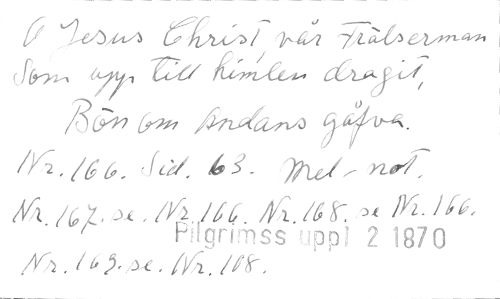 O Jesus Christ, vår Frälserman
Som upp till himlen dragit,
Bön om Andans gåfva.
Nr. 166. Sid. 63. Mel-not.
Nr. 167. se. Nr. 166. Nr. 168. se Nr. 166.
Pilgrimss uppl 2 1870
Nr. 169. se. Nr. 108.